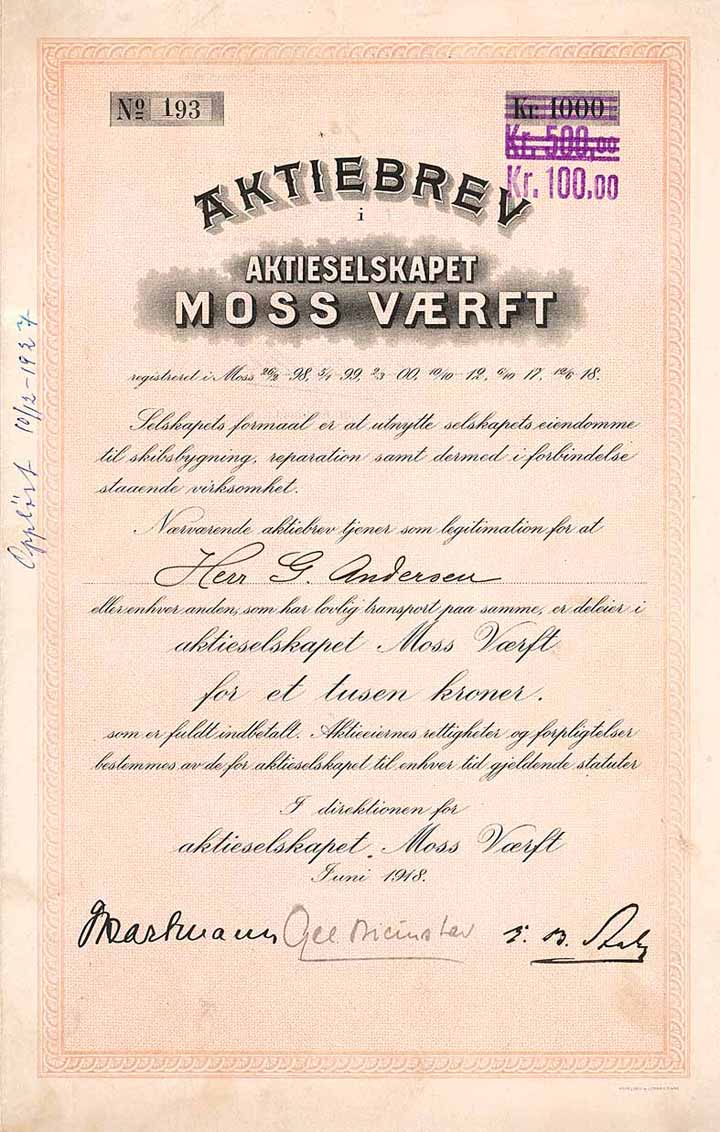 Nº 193
Kr. 1000
Kr. 500,00
Kr. 100,00
AKTIEBREV
i
AKTIESELSKAPET
MOSS VÆRFT
registreret i Moss 26/2 98, 5/4 99, 2/3 00, 10/10 12, 6/10 17, 12/6 18.
Selskapets formaal er at utnytte selskapets eiendomme
til skibsbygning, reparation samt dermed i forbindelse
staaende virksomhet.
Nærværende aktiebrev tjener som legitimation for at
Herr G. Andersen
eller enhver anden, som har lovlig transport paa samme, er deleier i
aktieselskapet Moss Værft
for et tusen kroner.
som er fuldt indbetalt. Aktieeiernes rettigheter og forpligtelser
bestemmes av de for aktieselskapet til enhver tid gjeldende statuter
I direktionen for
aktieselskapet Moss Værft
Juni 1918.
Oppløst 10/12-1927